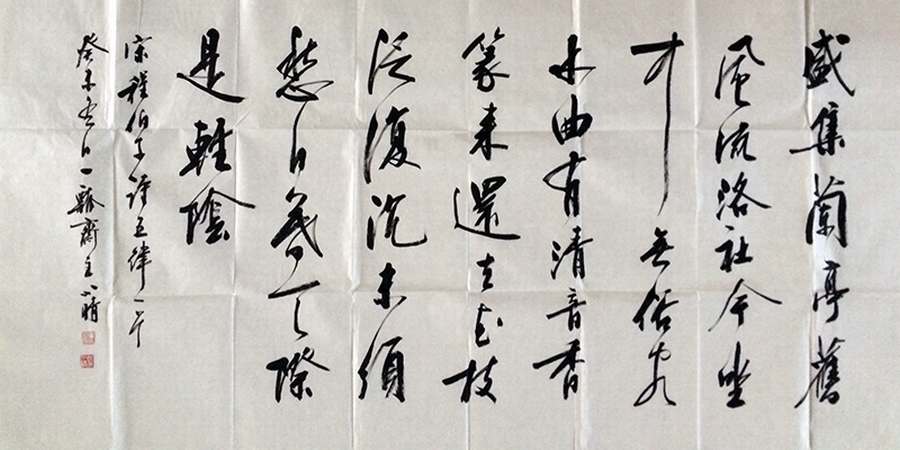 盛集蘭亭舊
風流洛社今坐
中無俗客
水曲有清音香
篆来還去花枝
泛復沉未須
愁日暮天際
是輕陰
宋程伯子詩五律一
癸未春日一瓢齋主